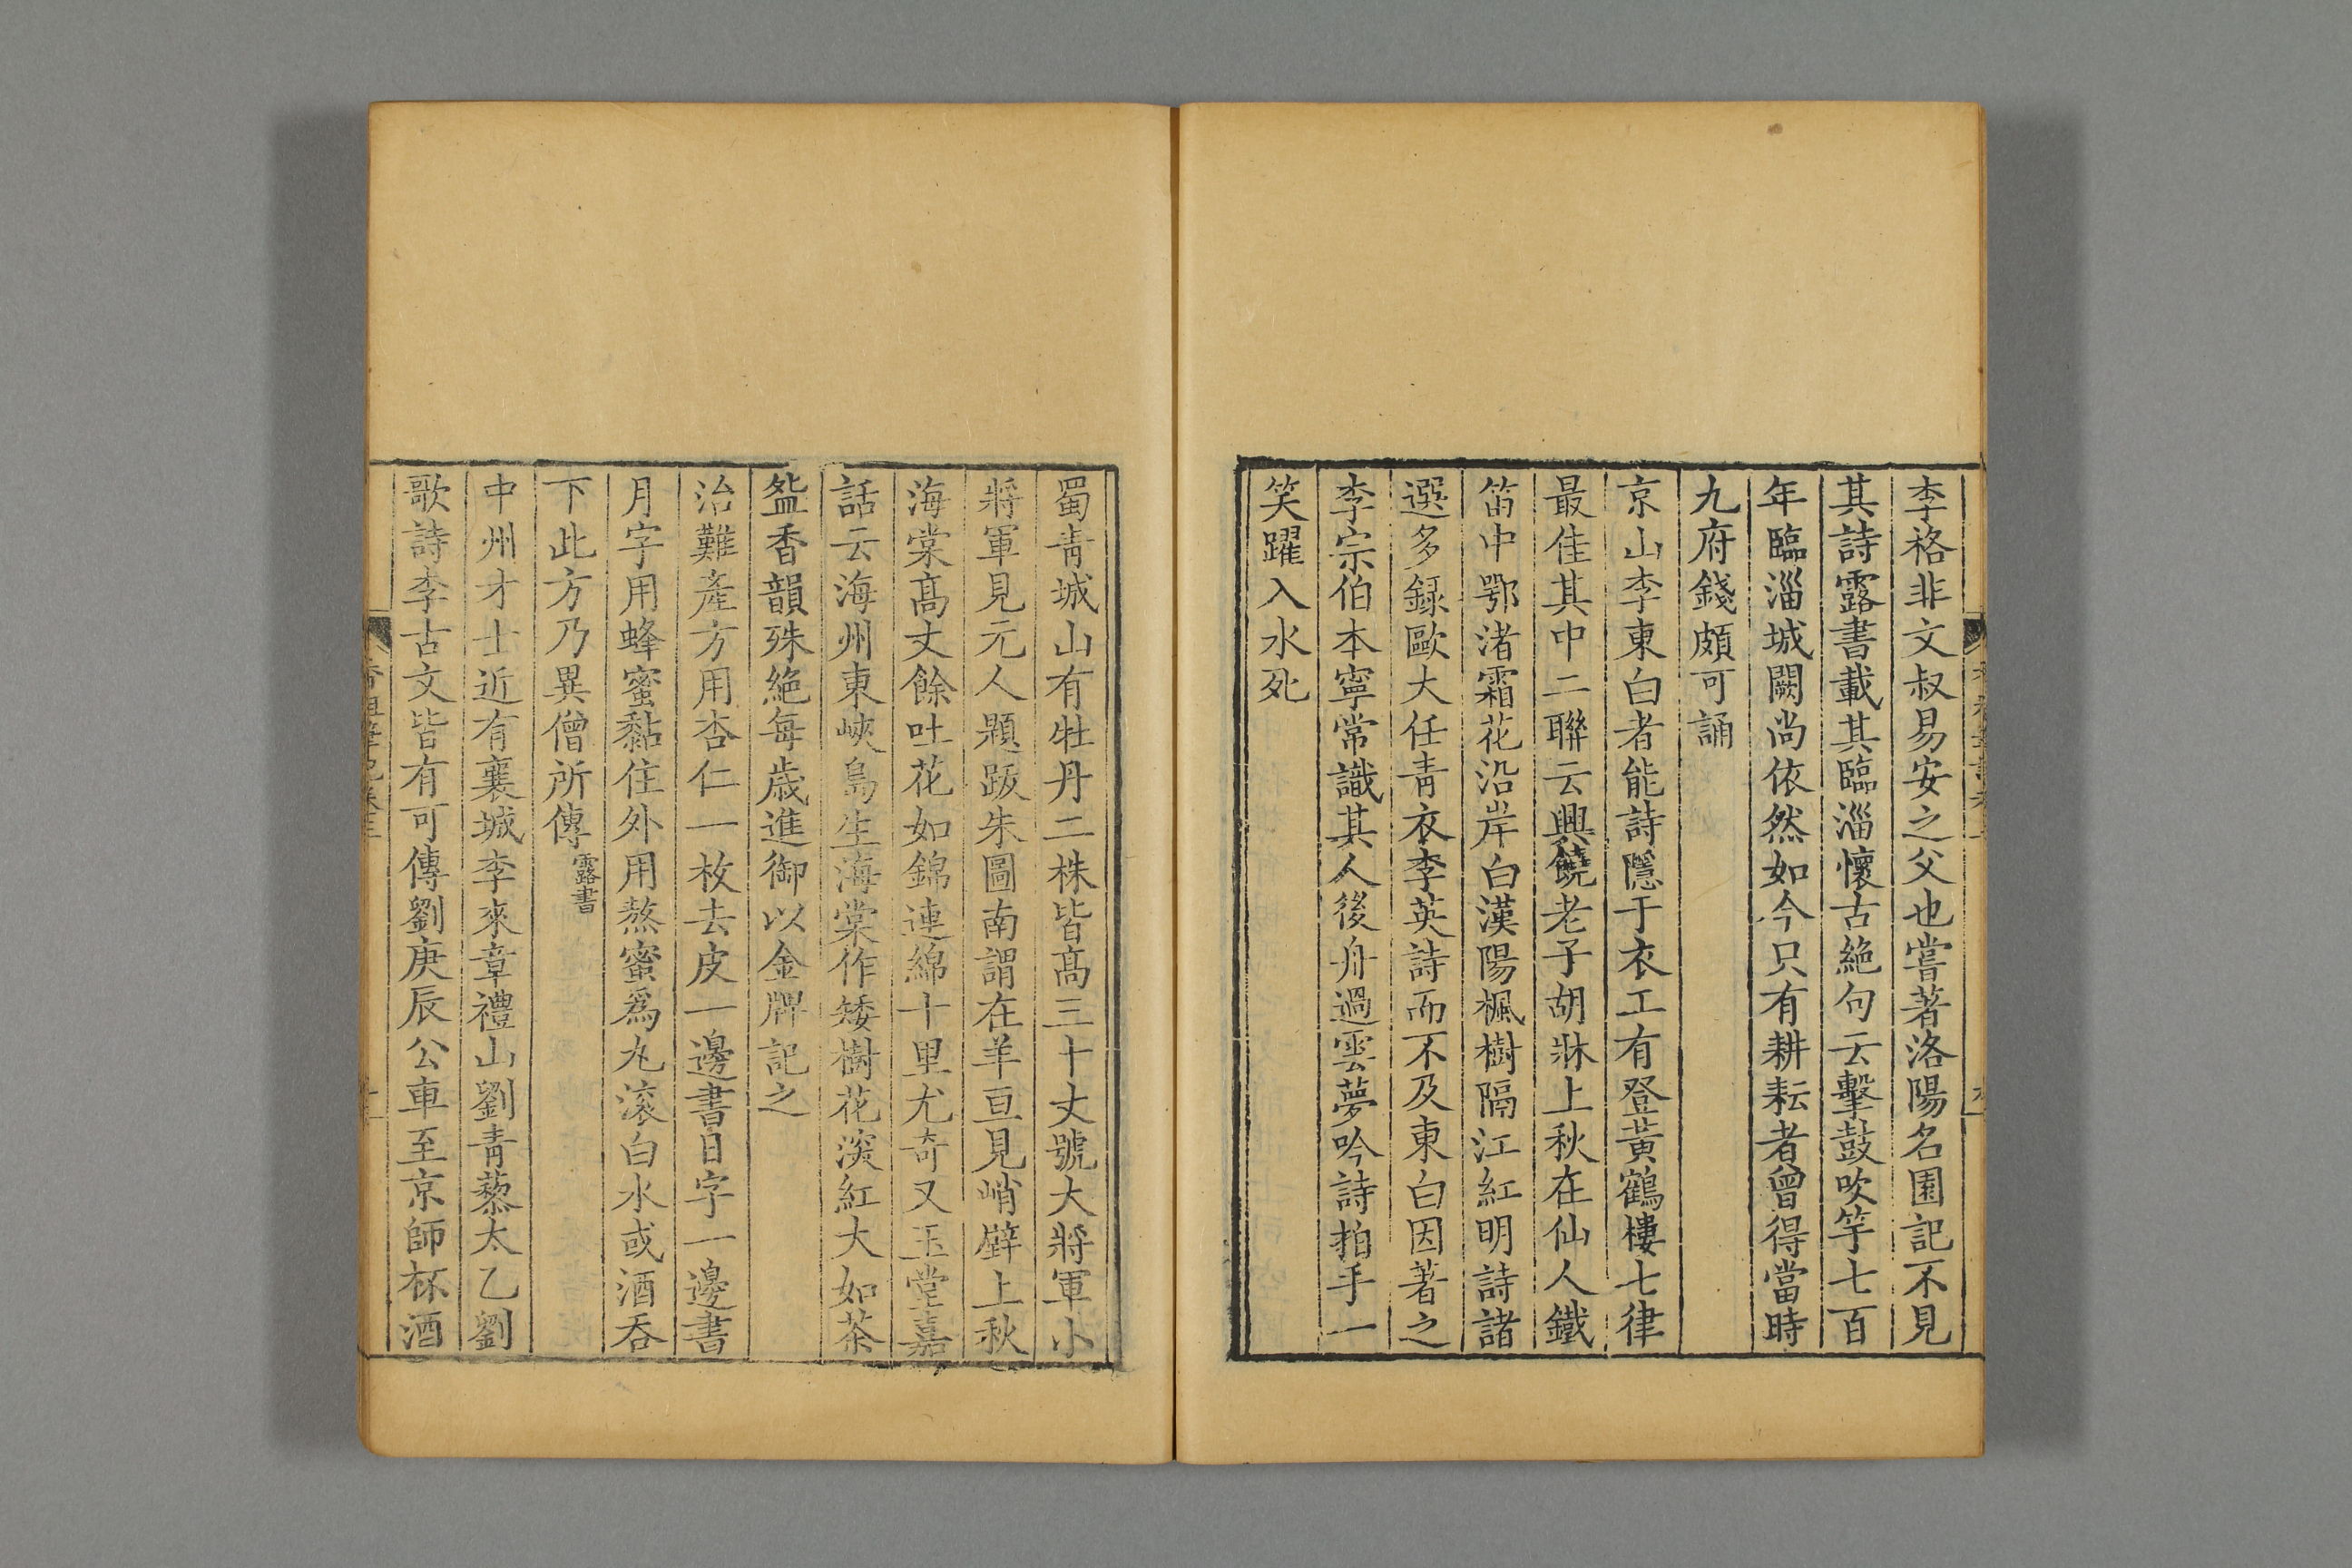 李格非文叔易安之父也嘗著洛陽名園記不見
其詩露書載其臨淄懷古絕句云擊鼓吹竽七百
年臨淄城闕尚依然如今只有耕耘者曾得當時
九府錢頗可誦
京山李東白者能詩隱于衣工有登黃鶴樓七律
最佳其中二聯云興饒老子胡牀上秋在仙人鐵
笛中鄂渚霜花沿岸白漢陽楓樹隔江紅明詩諸
選多録歐大任青衣李英詩而不及東白因著之
李宗伯本寧常識其人後舟過雲夢吟詩拍手一
笑躍入水死
蜀青城山有牡丹二株皆髙三十丈號大將軍小
將軍見元人題跋朱圖南謂在羊亘見峭壁上秋
海棠髙丈餘吐花如錦連綿十里尤奇又玉堂嘉
話云海州東峽島生海棠作矮樹花深紅大如茶
盌香韻殊絕每歲進御以金牌記之
治難產方用杏仁一枚去皮一邊書日字一邊書
月字用蜂蜜黏住外用熬蜜為丸滚白水或酒吞
下此方乃異僧所傳露書
中州才士近有襄城李來章禮山劉青藜太乙劉
歌詩李古文皆有可傳劉庚辰公車至京師杯酒